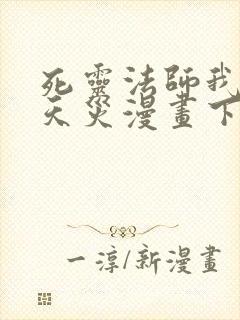 死靈法師我
天災漫畫下
一淳/新漫畫